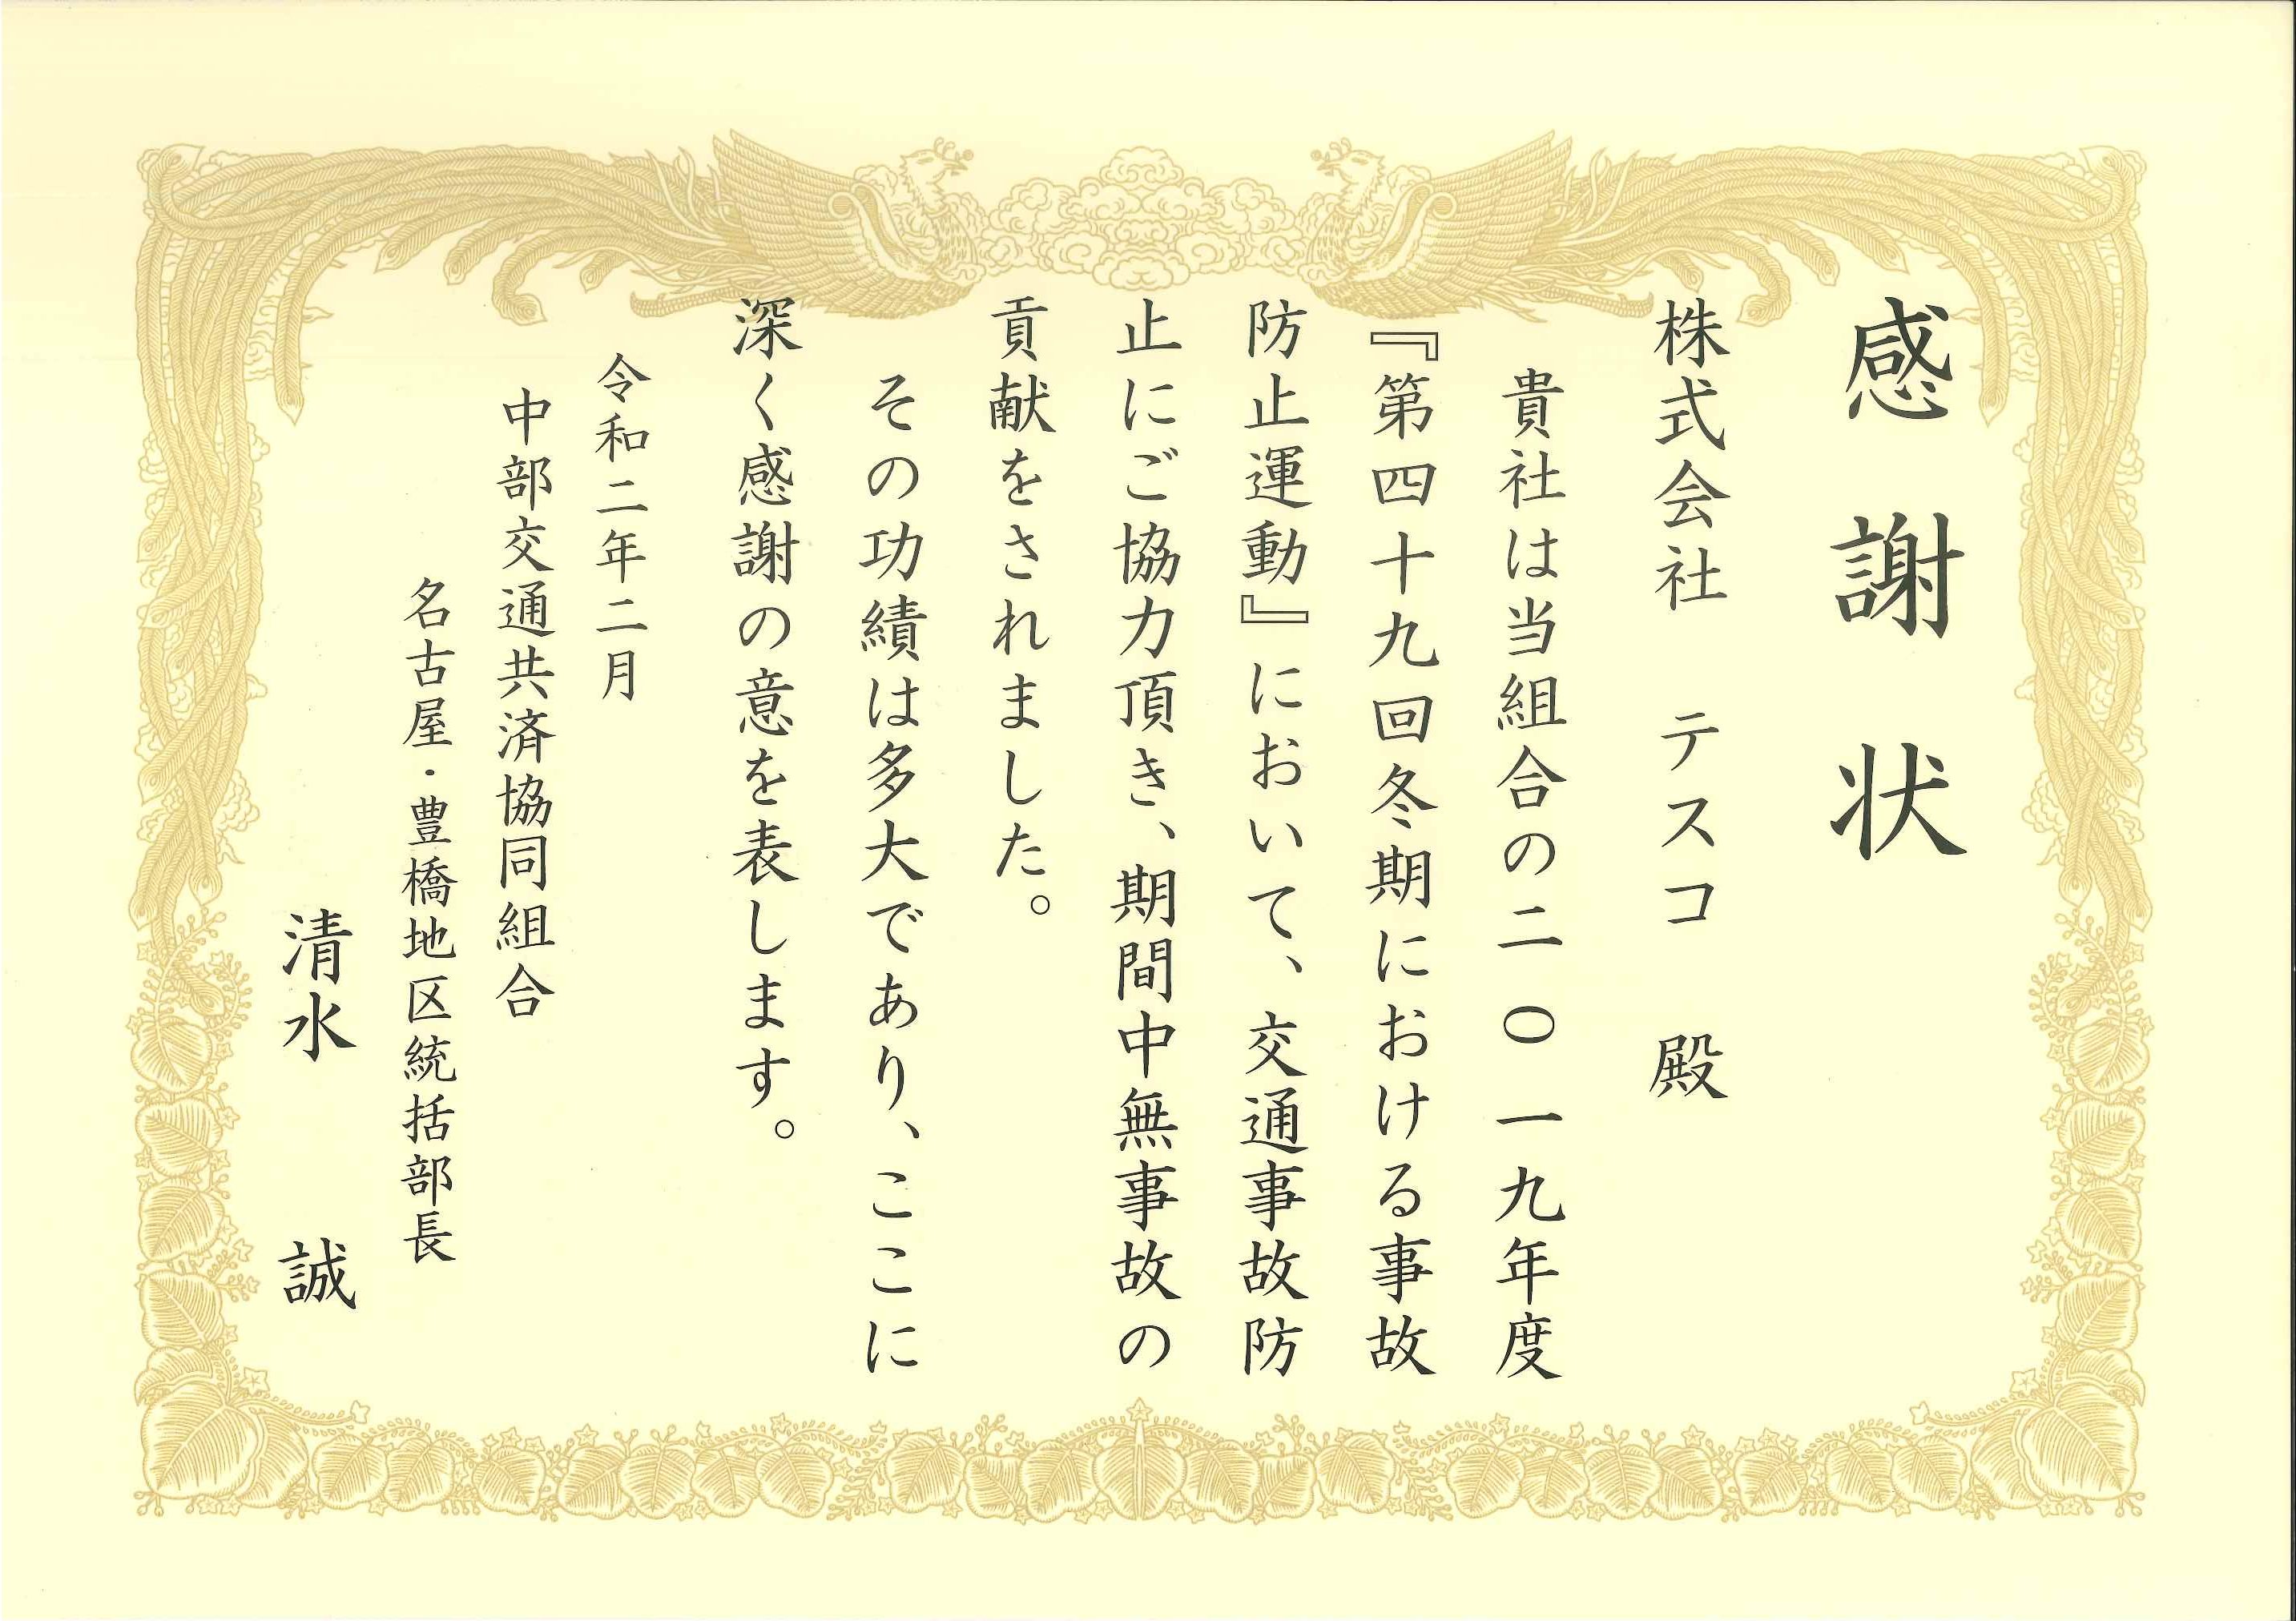 感謝状
株式会社 テスコ 殿
貴社は当組合の二〇一九年度
『第四十九回冬期における事故
防止運動』において、交通事故防
止にご協力頂き、期間中無事故の
貢献をされました。
その功績は多大であり、ここに
深く感謝の意を表します。
令和二年二月
中部交通共済協同組合
名古屋・豊橋地区統括部長
清水 誠